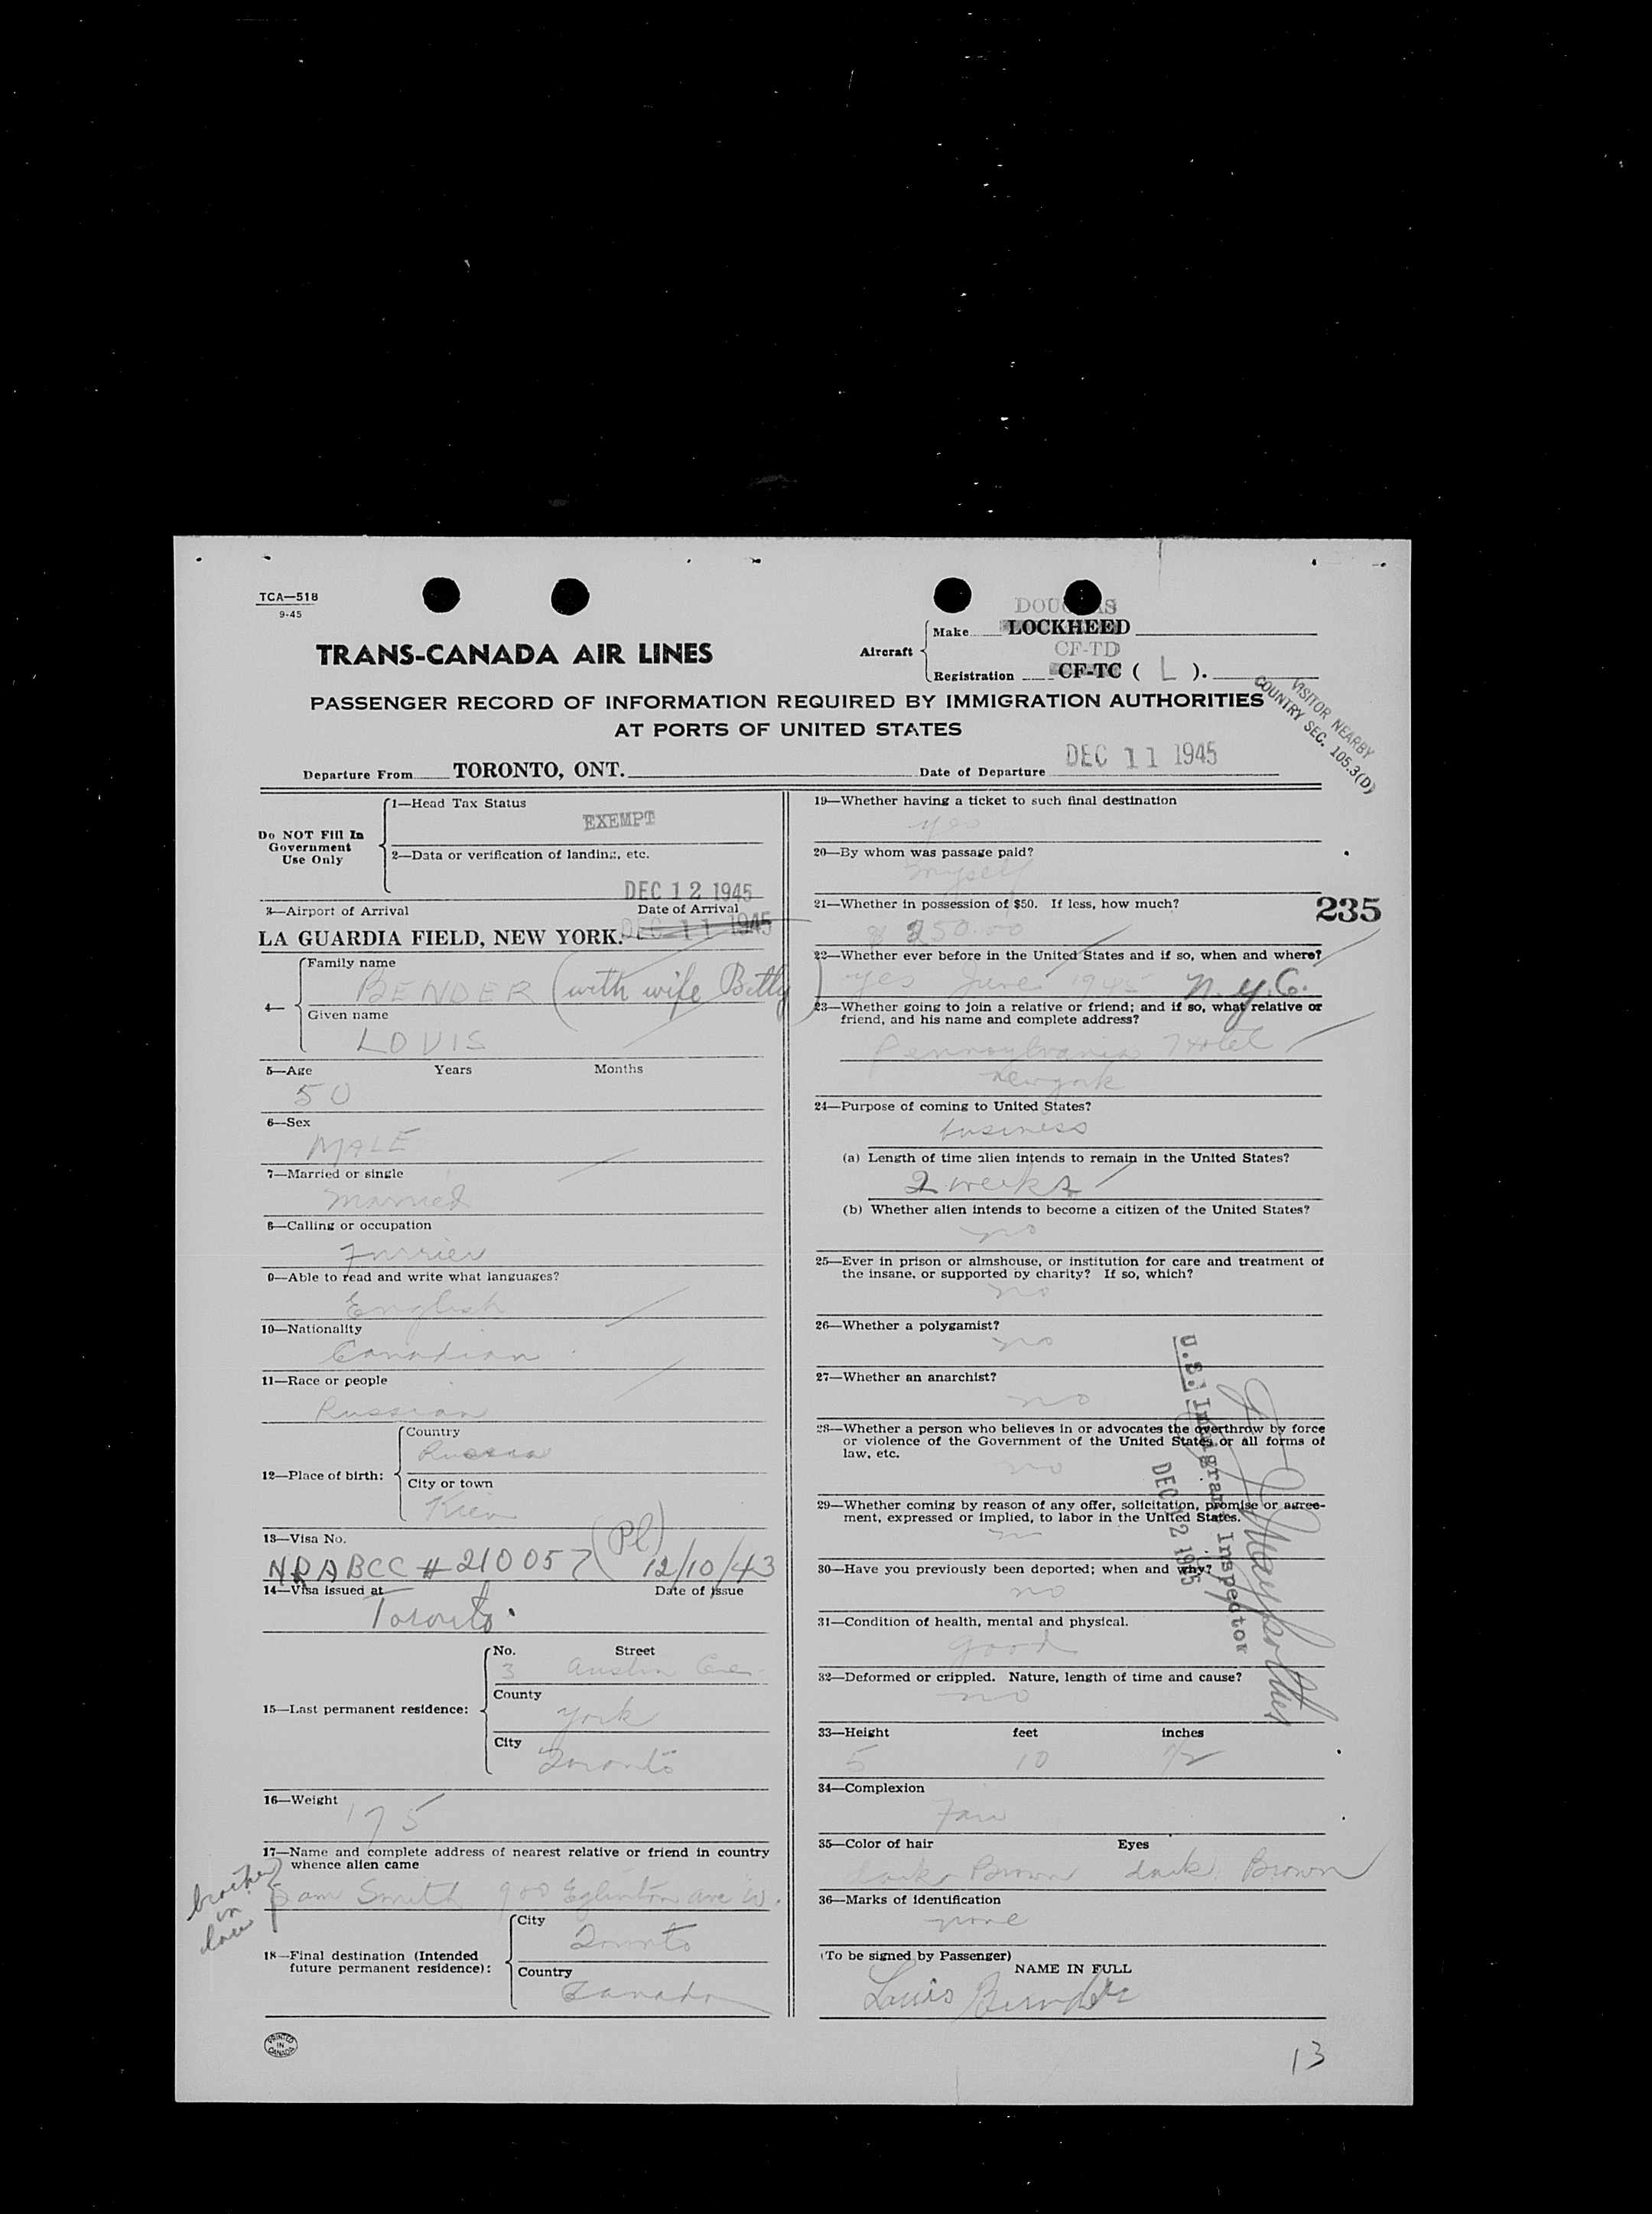 TCA—518
9-45
TRANS-CANADA AIR LINES
Aircraft
DOUGLAS
Make LOCKHEED
CF-TD
Registration CF-TC ( L ).
PASSENGER RECORD OF INFORMATION REQUIRED BY IMMIGRATION AUTHORITIES
AT PORTS OF UNITED STATES
VISITOR NEARBY
COUNTRY SEC. 105.3(D)
Departure From TORONTO, ONT. Date of Departure DEC 11 1945
Do NOT Fill In
Government
Use Only
1—Head Tax Status
EXEMPT
2—Data or verification of landing, etc.
DEC 12 1945
3—Airport of Arrival Date of Arrival
LA GUARDIA FIELD, NEW YORK. DEC 11 1945
4—
Family name
BENDER (with wife Betty)
Given name
LOUIS
5—Age Years Months
50
6—Sex
MALE
7—Married or single
Married
8—Calling or occupation
Furrier
9—Able to read and write what languages?
English
10—Nationality
Canadian
11—Race or people
Russian
12—Place of birth:
Country
Russia
City or town
Kiev
13—Visa No.
(Pl)
NRABCC # 210057 12/10/43
14—Visa issued at Date of issue
Toronto
15—Last permanent residence:
No. Street
3 Austin Cres.
County
York
City
Toronto
16—Weight
175
17—Name and complete address of nearest relative or friend in country
whence alien came
brother
in
law
Sam Smith 900 Eglinton ave W.
18—Final destination (Intended
future permanent residence):
City
Toronto
Country
Canada
PRINTED
IN
CANADA
19—Whether having a ticket to such final destination
yes
20—By whom was passage paid?
myself
21—Whether in possession of $50. If less, how much?
235
$ 250.00
22—Whether ever before in the United States and if so, when and where?
yes June 1945 N.Y.C.
23—Whether going to join a relative or friend; and if so, what relative or
friend, and his name and complete address?
Pennsylvania Hotel
New york
24—Purpose of coming to United States?
business
(a) Length of time alien intends to remain in the United States?
2 weeks
(b) Whether alien intends to become a citizen of the United States?
no
25—Ever in prison or almshouse, or institution for care and treatment of
the insane, or supported by charity? If so, which?
no
26—Whether a polygamist?
no
27—Whether an anarchist?
no
28—Whether a person who believes in or advocates the overthrow by force
or violence of the Government of the United States or all forms of
law, etc.
no
29—Whether coming by reason of any offer, solicitation, promise or agree-
ment, expressed or implied, to labor in the United States.
no
30—Have you previously been deported; when and why?
no
U.S. Immigrant Inspector
DEC 12 1945
31—Condition of health, mental and physical.
good
32—Deformed or crippled. Nature, length of time and cause?
no
33—Height feet inches
5 10 1/2
34—Complexion
Fair
35—Color of hair Eyes
dark Brown dark Brown
36—Marks of identification
none
(To be signed by Passenger)
NAME IN FULL
Louis Bender
13